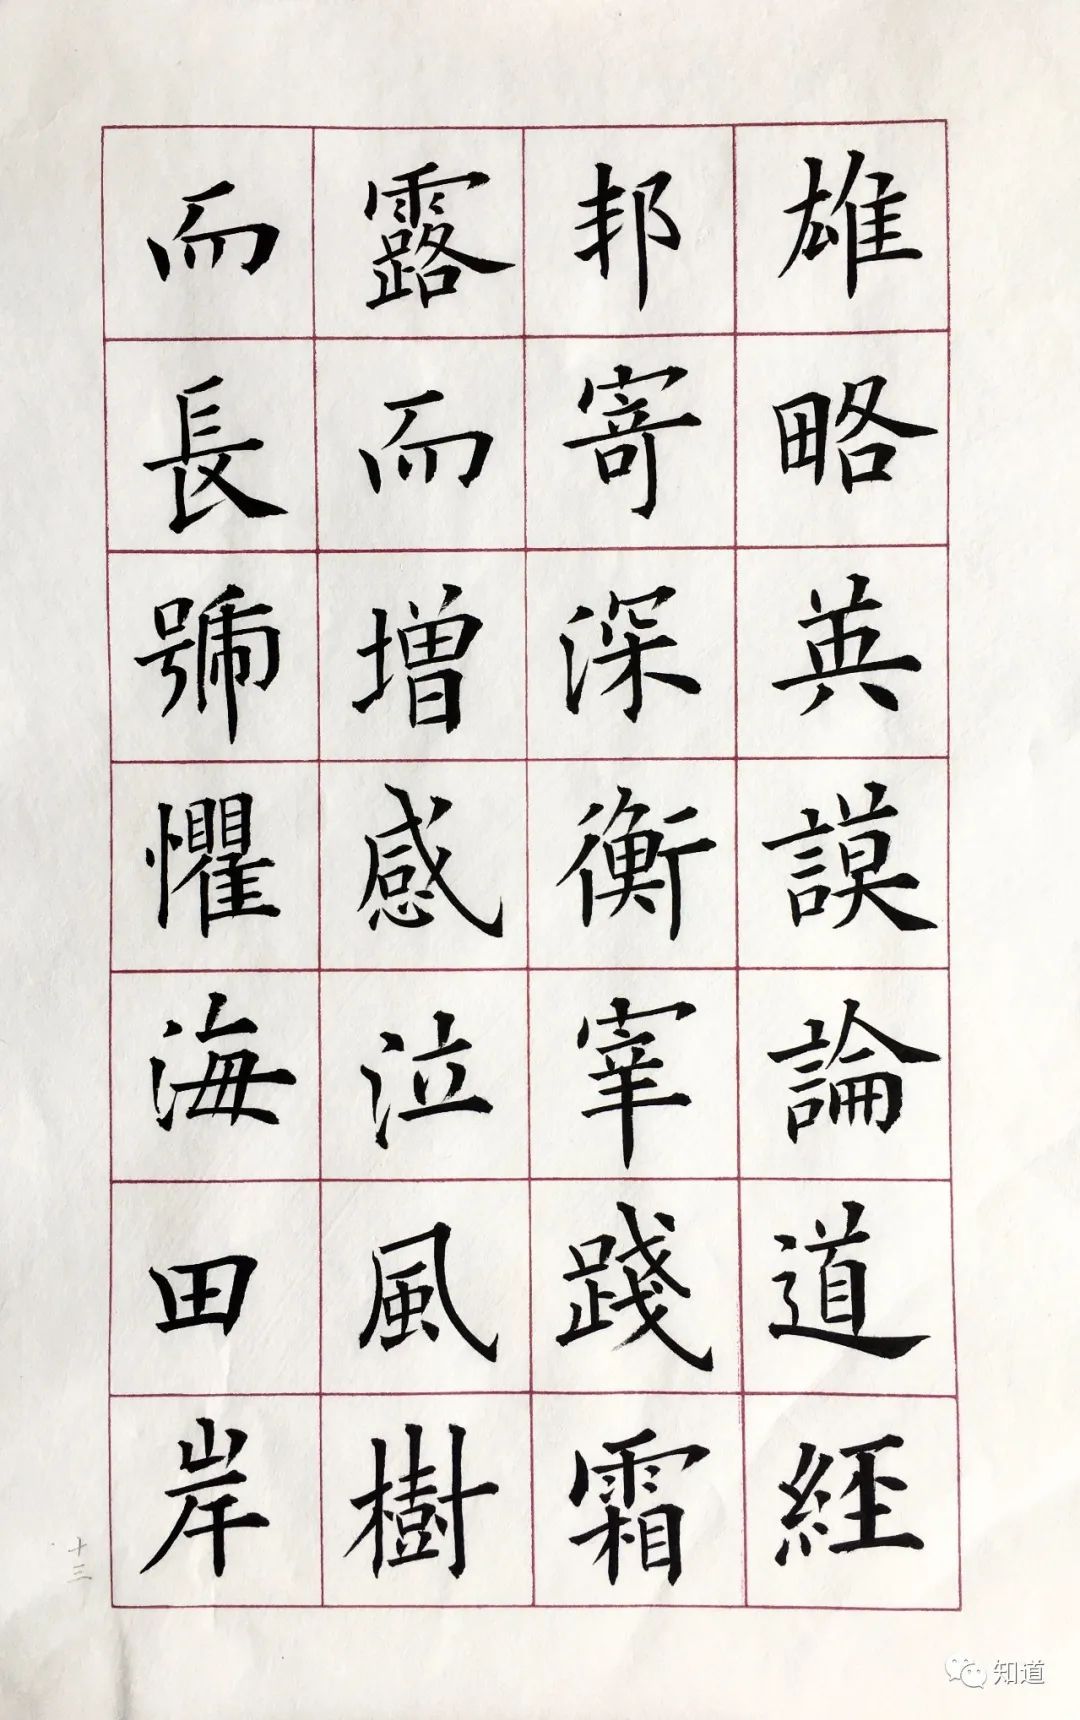 雄略英謨論道經
邦寄深衡宰踐霜
露而增感泣風樹
而長號懼海田岸
十三
知道